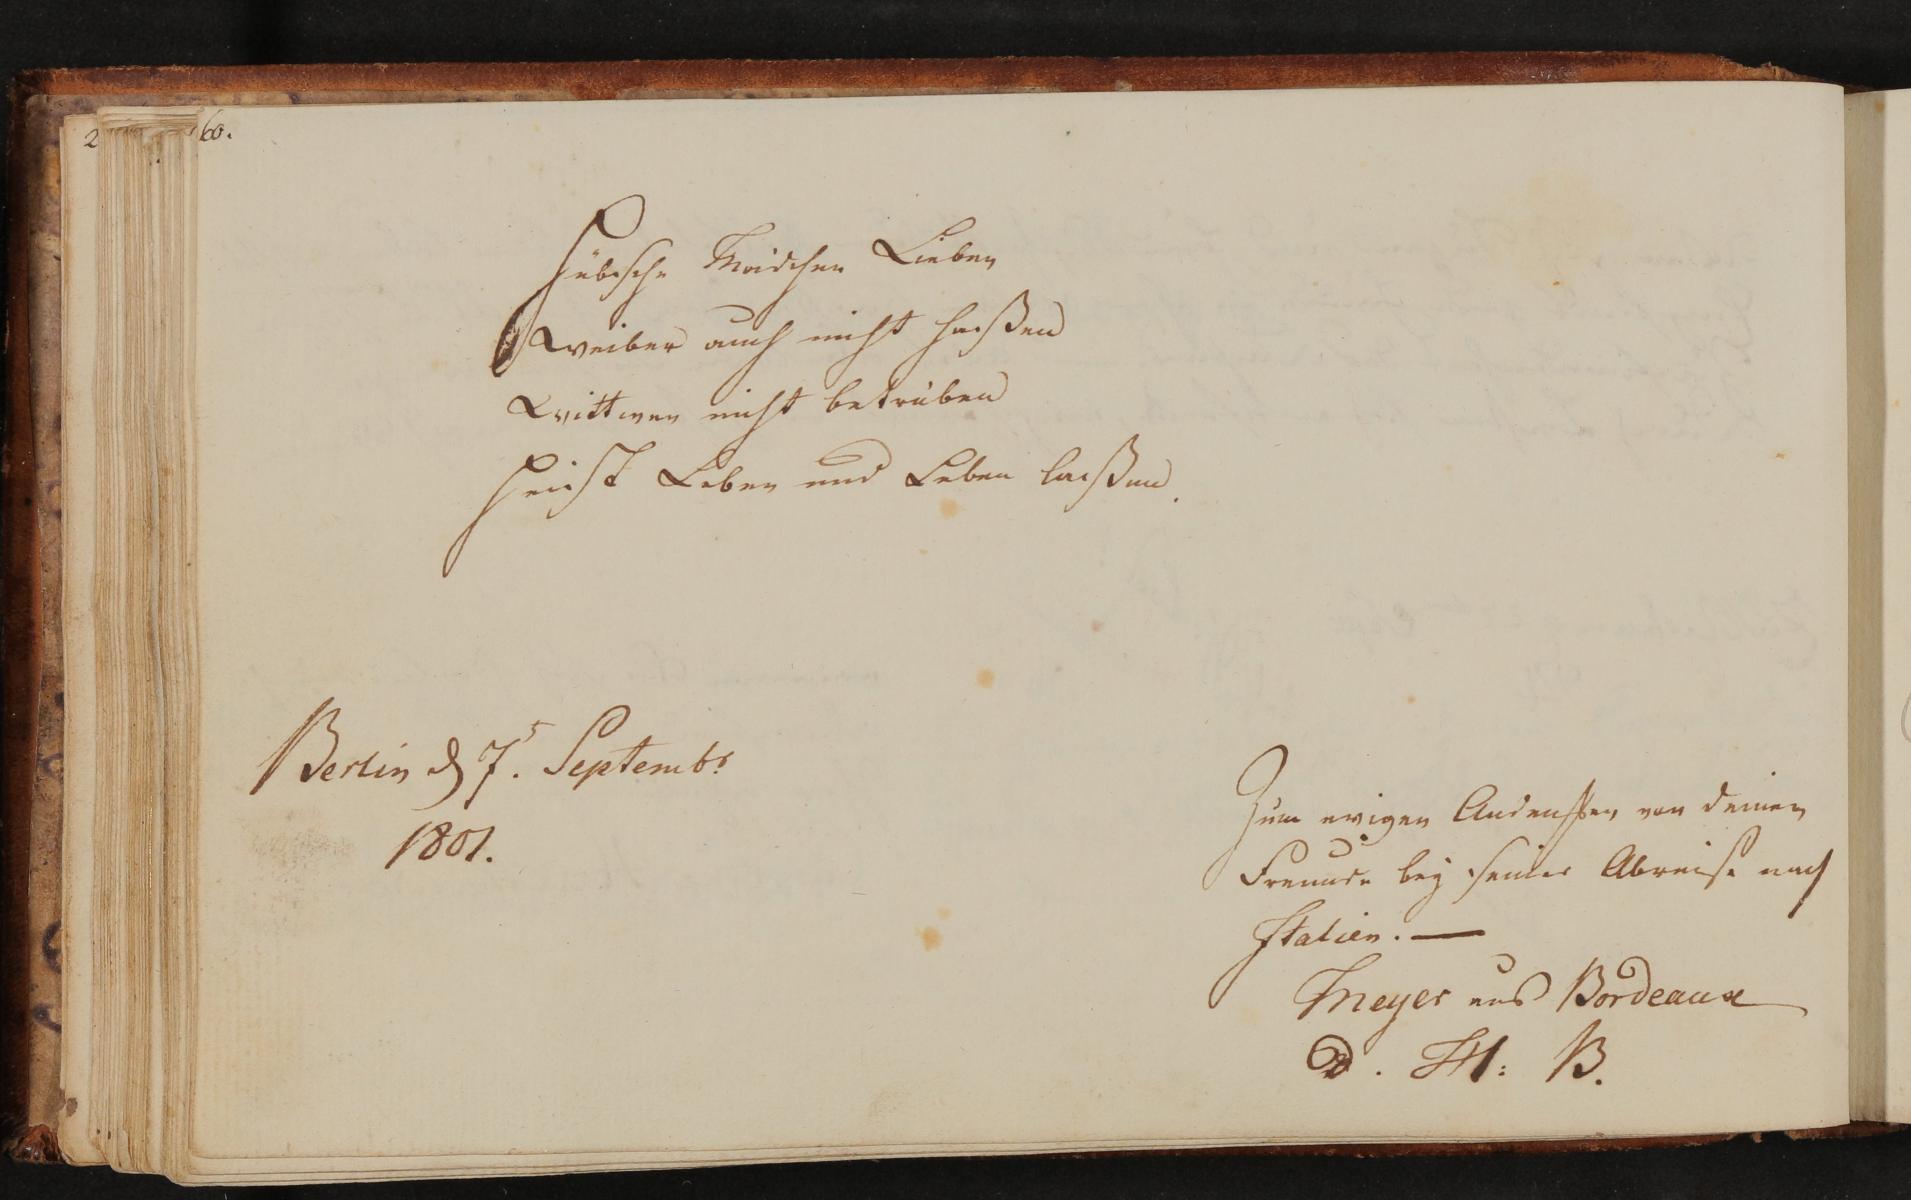 60.
Hübsche Mädchen Lieben
Weiber auch nicht haßen
Wittwen nicht betrüben
Heist Leben und Leben laßen.
Berlin d 7t. Septembr
1801.
Zum ewigen Andenken von deinen
Freunde bey seiner Abreise nach
Italien. —
Meyer aus Bordeaux
D. H: B.